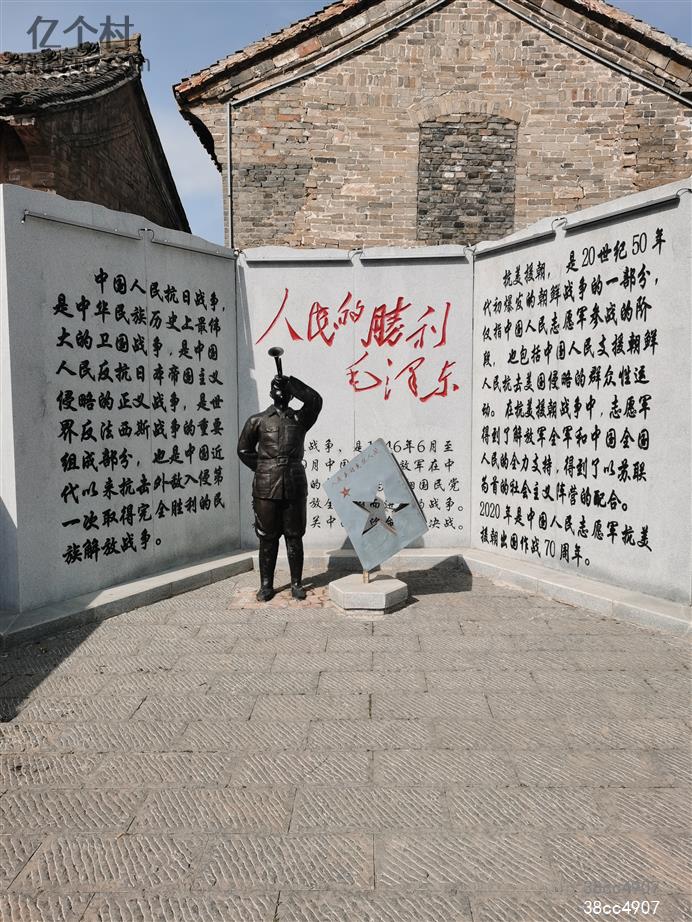 亿个村
中国人民抗日战争，
是中华民族历史上最伟
大的卫国战争，是中国
人民反抗日本帝国主义
侵略的正义战争，是世
界反法西斯战争的重要
组成部分，也是中国近
代以来抗击外敌入侵第
一次取得完全胜利的民
族解放战争。
人民的勝利
毛泽东
战争，是 46年6月至
月中国 放军在中
的 国民党
放全 战争。
关中 决战。
抗美援朝，是20世纪50年
代初爆发的朝鲜战争的一部分，
仅指中国人民志愿军参战的阶
段，也包括中国人民支援朝鲜
人民抗击美国侵略的群众性运
动。在抗美援朝战争中，志愿军
得到了解放军全军和中国全国
人民的全力支持，得到了以苏联
为首的社会主义阵营的配合。
2020年是中国人民志愿军抗美
援朝出国作战70周年。
38cc4907
38cc4907